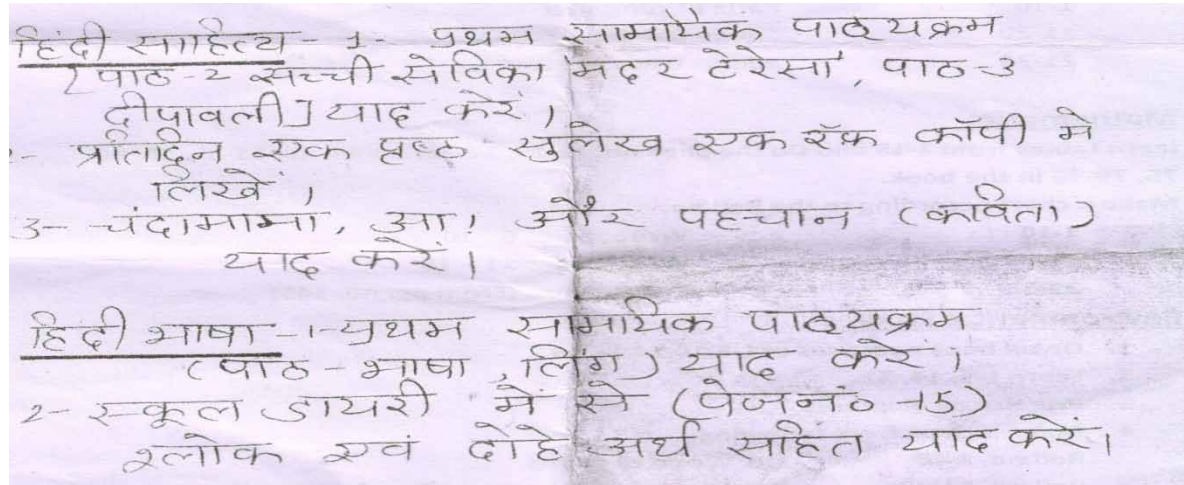 हिंदी साहित्य - 1 प्रथम सामायिक पाठ्यक्रम
[पाठ - 2 सच्ची सेविका मदर टेरेसा, पाठ 3
दीपावली] याद करें।
प्रतिदिन एक पृष्ठ सुलेख एक रॅफ कॉपी में
लिखें।
3- चंदामामा, आ! और पहचान (कविता)
याद करें।
हिंदी भाषा - 1 प्रथम सामायिक पाठ्यक्रम
(पाठ - भाषा, लिंग) याद करें।
2- स्कूल डायरी में से (पेज न० 15)
श्लोक एवं दोहे अर्थ सहित याद करें।